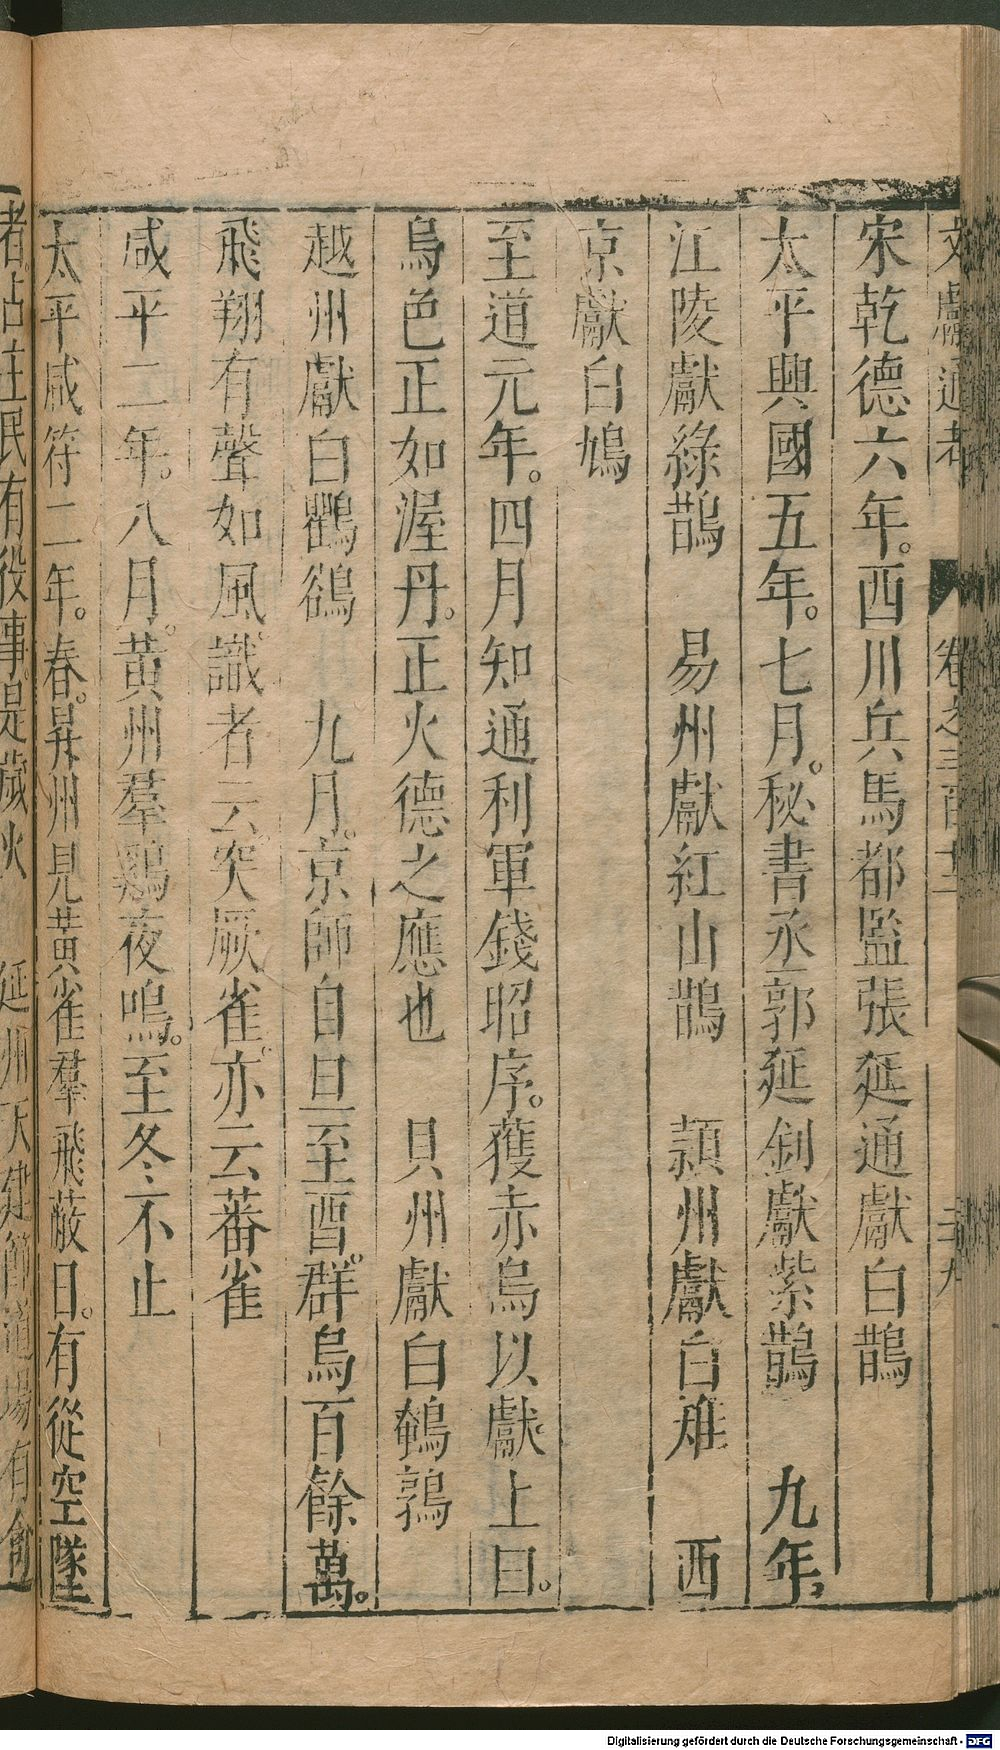 文獻通考 卷之三百十二 三九
宋乾德六年。西川兵馬都監張延通獻白鵲
太平興國五年。七月。秘書丞郭延釗獻紫鵲 九年，
江陵獻綠鵲 易州獻紅山鵲 潁州獻白雉 西
京獻白鳩
至道元年。四月知通利軍錢昭序。獲赤烏以獻上曰。
烏色正如渥丹。正火德之應也 貝州獻白鵪鶉
越州獻白鸜鵒 九月。京師自旦至酉。群烏百餘萬。
飛翔有聲如風。識者云。突厥雀。亦云蕃雀
咸平二年。八月。黃州羣鷄夜鳴。至冬不止
太平咸符二年。春。昇州見黃雀羣飛蔽日。有從空墜
者。占主民有役事。是歲火 延州天建節道場有
Digitalisierung gefördert durch die Deutsche Forschungsgemeinschaft - DFG